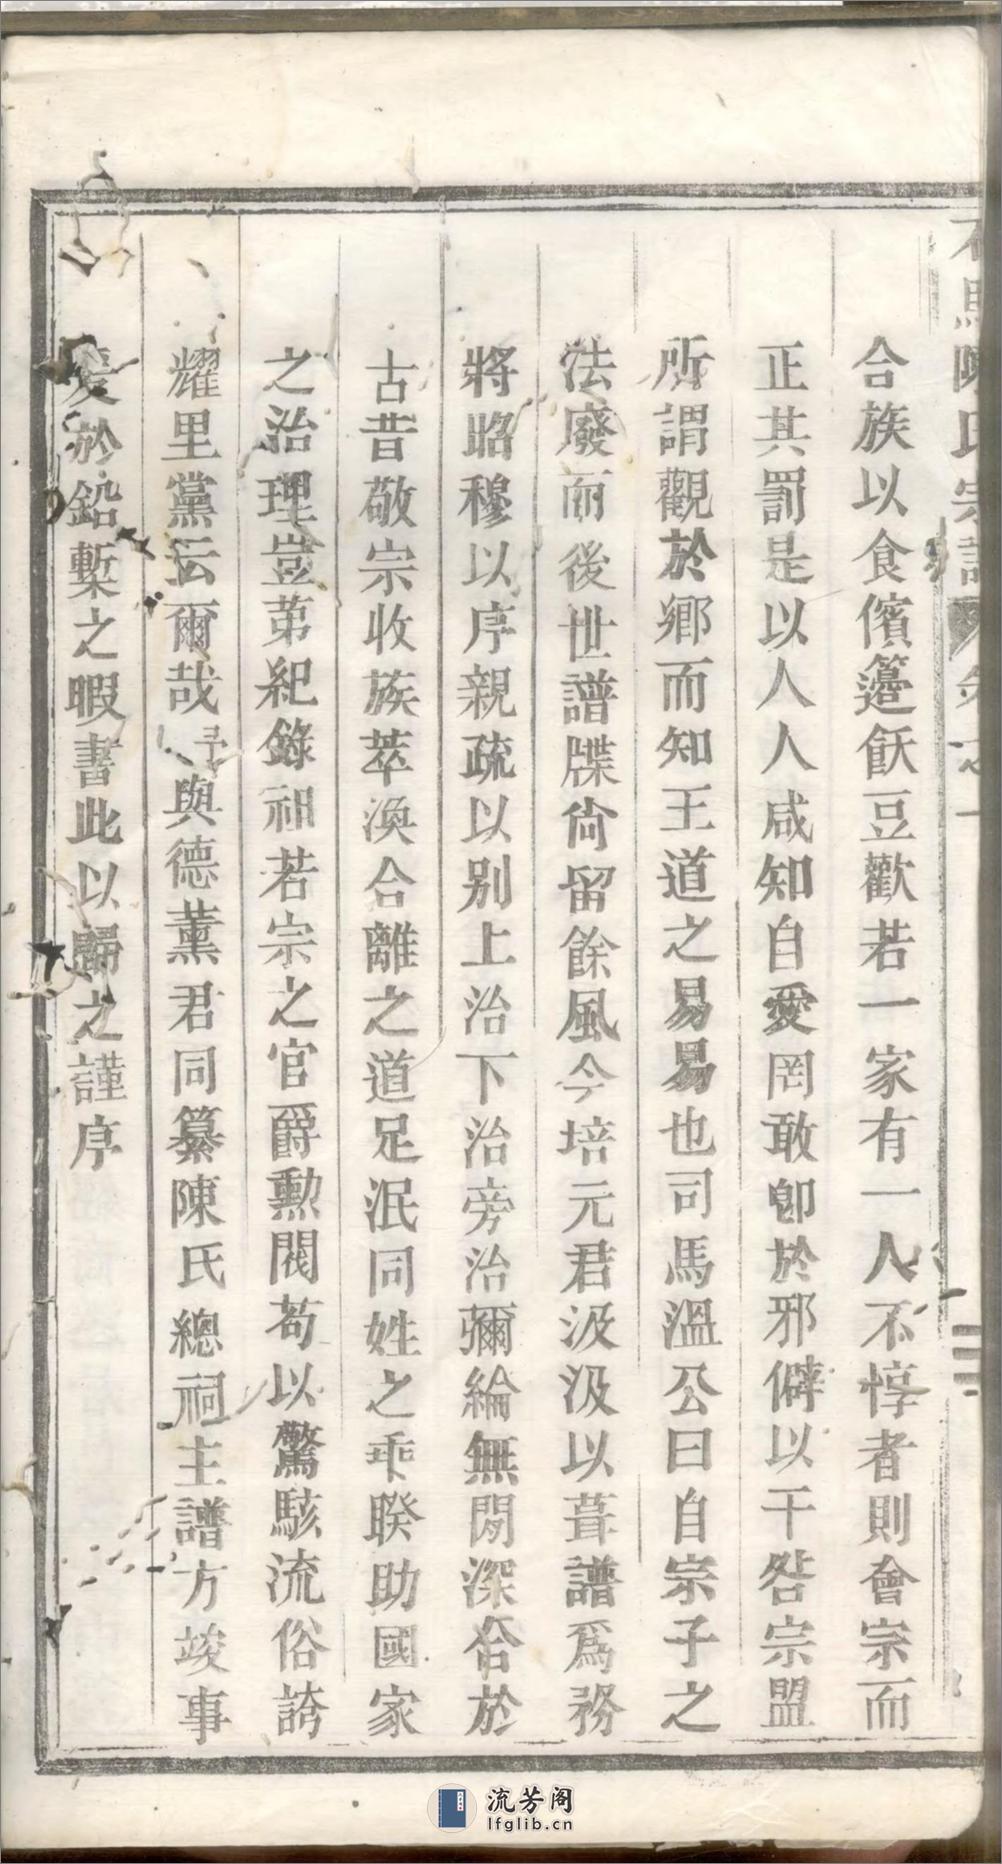 合族以食儐籩飫豆歡若一家有一人不惇者則會宗而
正其罰是以人人咸知自愛罔敢卽於邪僻以干咎宗盟
所謂觀於鄉而知王道之易易也司馬溫公曰自宗子之
法廢而後世譜牒尙留餘風今培元君汲汲以葺譜爲務
將昭穆以序親疏以別上治下治旁治彌綸無閒深合於
古昔敬宗收族萃渙合離之道足泯同姓之乖睽助國家
之治理豈苐紀錄祖若宗之官爵勳閥苟以驚駭流俗誇
耀里黨云爾哉予與德薰君同纂陳氏總祠主譜方竣事
爰於鉛槧之暇書此以歸之謹序
流芳阁
lfglib.cn